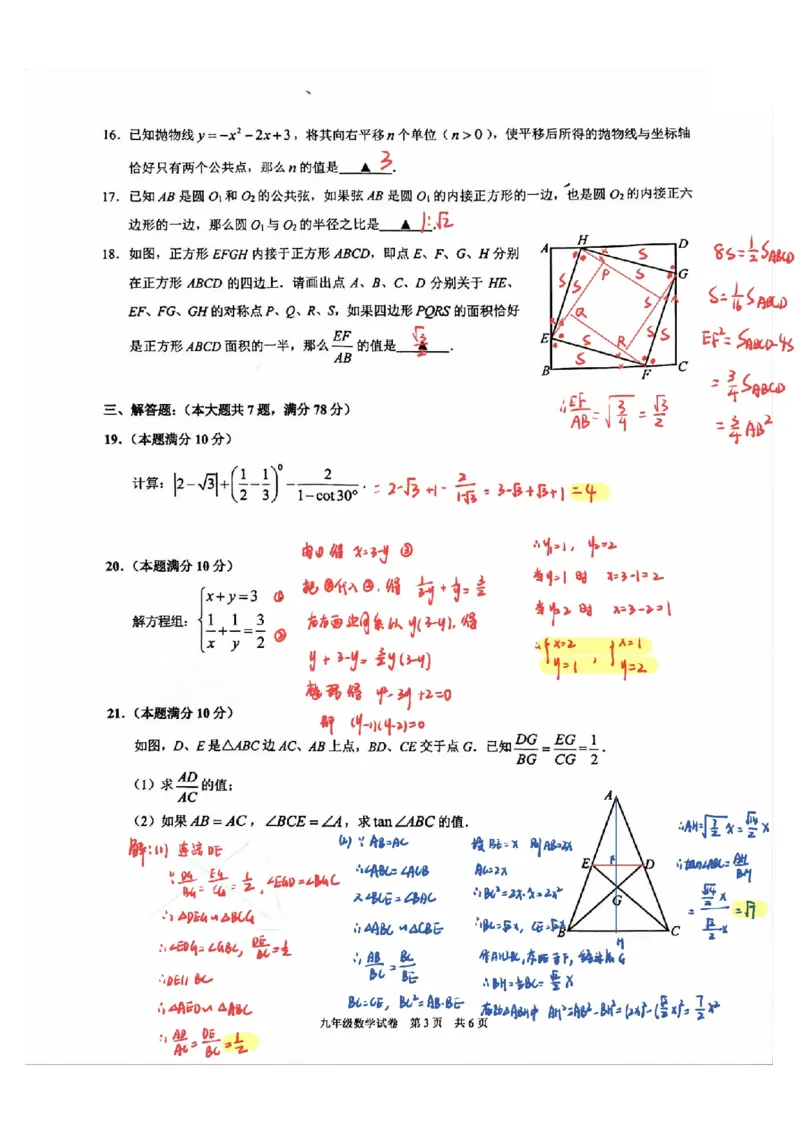 16. 已知抛物线 y=-x²-2x+3，将其向右平移n个单位（n>0），使平移后所得的抛物线与坐标轴
恰好只有两个公共点，那么n的值是 ▲ 3.
17. 已知AB是圆O₁和O₂的公共弦，如果弦AB是圆O₁的内接正方形的一边，也是圆O₂的内接正六
边形的一边，那么圆O₁与O₂的半径之比是 ▲ 1:√2.
18. 如图，正方形EFGH内接于正方形ABCD，即点E、F、G、H分别
在正方形ABCD的四边上．请画出点A、B、C、D分别关于HE、
EF、FG、GH的对称点P、Q、R、S，如果四边形PQRS的面积恰好
是正方形ABCD面积的一半，那么 EF/AB 的值是 ▲ √3/2 .
A H D
G
E
B F C
P Q R
S S S S S S S S
8S=1/2 S_ABCD
S=1/16 S_ABCD
EF²=S_ABCD-4S
=3/4 S_ABCD
=3/4 AB²
∴EF/AB=√(3/4)=√3/2
三、解答题：（本大题共7题，满分78分）
19.（本题满分10分）
计算：|2-√3|+(1/2-1/3)⁰-2/(1-cot30°).
=2-√3+1-2/(1-√3)=3-√3+√3+1=4
20.（本题满分10分）
解方程组：{x+y=3 ①
1/x+1/y=3/2 ②
由①得 x=3-y ③
把③代入②,得 1/(3-y)+1/y=3/2
左右两边同乘以y(3-y),得
y+3-y=3/2y(3-y)
整理得 y²-3y+2=0
即 (y-1)(y-2)=0
∴y₁=1，y₂=2
当y=1时 x=3-1=2
当y=2时 x=3-2=1
∴{x=2 y=1 , {x=1 y=2
21.（本题满分10分）
如图，D、E是△ABC边AC、AB上点，BD、CE交于点G．已知 DG/BG=EG/CG=1/2.
（1）求 AD/AC 的值；
（2）如果AB=AC，∠BCE=∠A，求tan∠ABC的值．
解:(1) 连接DE
∵DG/BG=EG/CG=1/2,∠EGD=∠BGC
∴△DEG∽△BCG
∴∠EDG=∠GBC, DE/BC=1/2
∴DE∥BC
∴△AED∽△ABC
∴AD/AC=DE/BC=1/2
(2) ∵AB=AC
∴∠ABC=∠ACB
又∠BCE=∠BAC
∴△ABC∽△CBE
∴AB/BC=BC/BE
BC=CE, BC²=AB·BE
设BE=x 则AB=2x
AC=2x
∴BC²=2x·x=2x²
∴BC=√2x, CE=√2x
作AH⊥BC,交DE于F,经过点G
∴BH=1/2BC=√2/2 x
在Rt△ABH中 AH²=AB²-BH²=(2x)²-(√2/2 x)²=7/2x²
A
E F D
G
B H C
∴AH=√(7/2) x=√14/2 x
∴tan∠ABC=AH/BH
=(√14/2 x)/(√2/2 x)=√7
九年级数学试卷 第3页 共6页